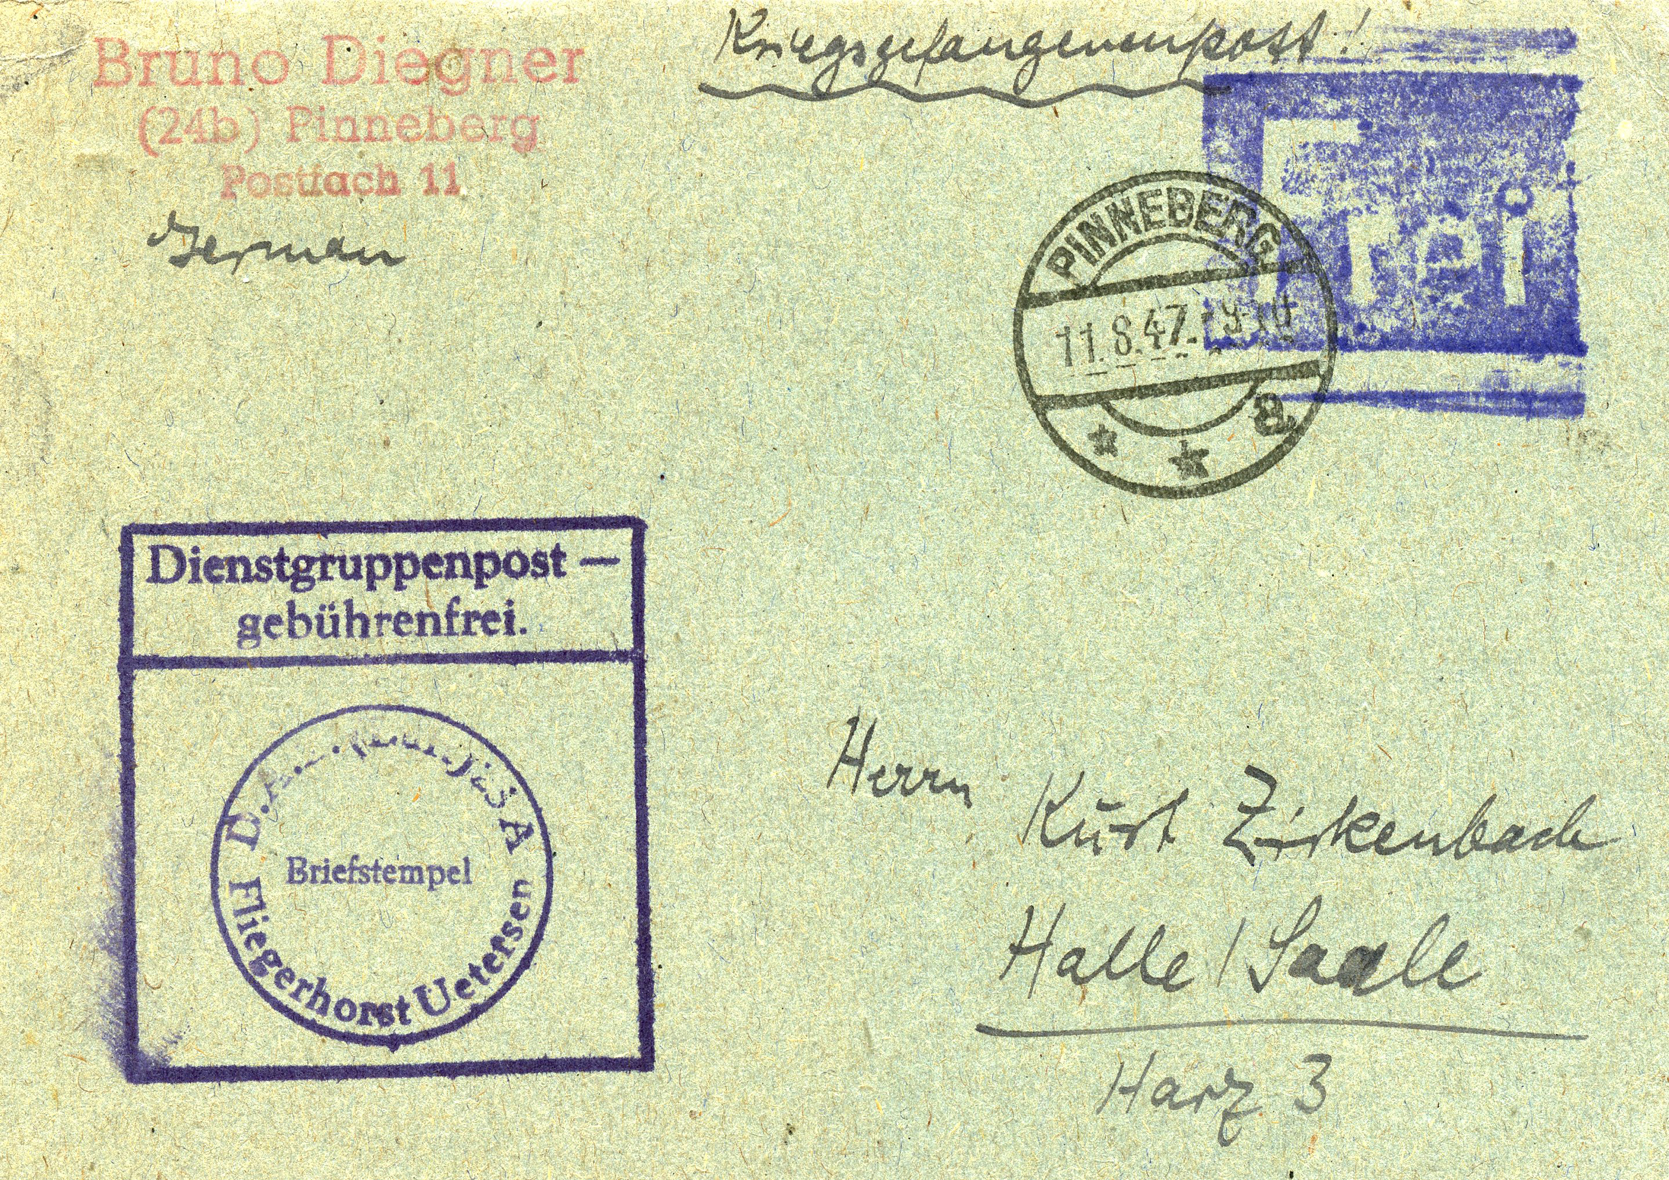 Bruno Diegner
(24b) Pinneberg
Postfach 11
German
Kriegsgefangenenpost!
Frei
PINNEBERG
11.8.47.-9-10
a
Dienstgruppenpost —
gebührenfrei.
Briefstempel
Fliegerhorst Uetersen
Herrn
Kurt Zirkenbach
Halle / Saale
Harz 3